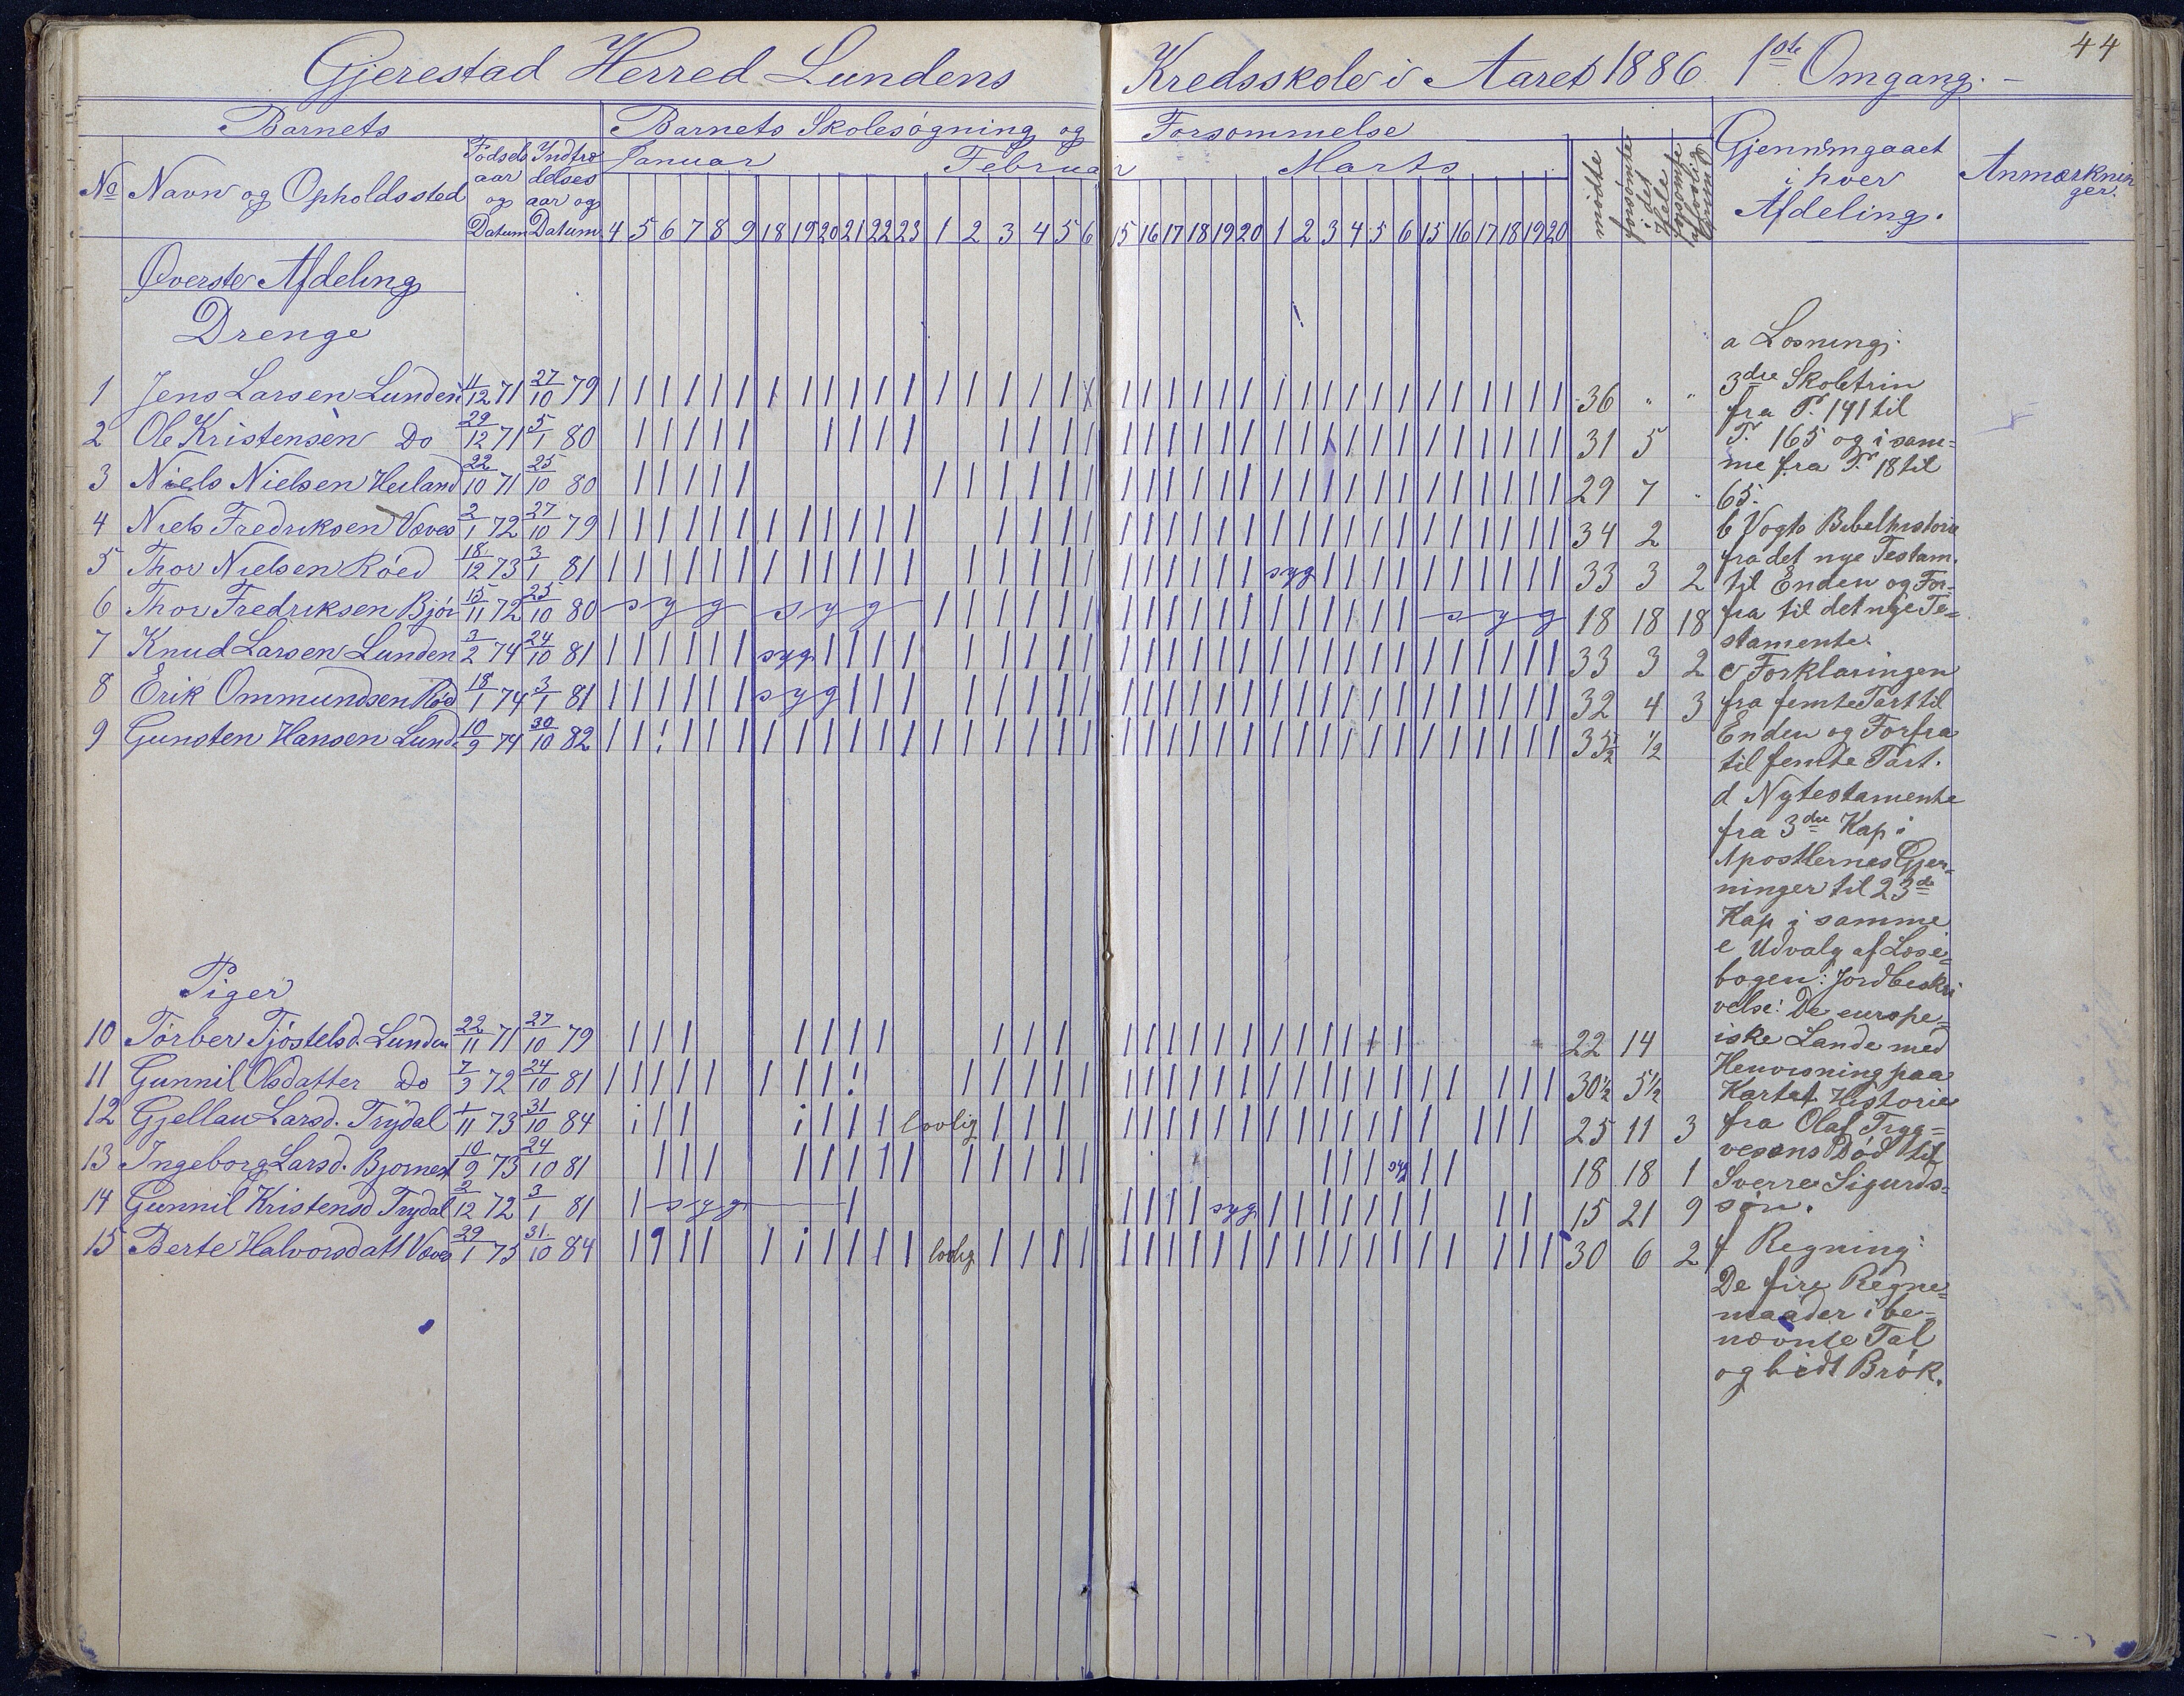 44
Gjerestad Herred Lundens Kredsskole i Aaret 1886 1ste Omgang.
Barnets
Barnets Skolesøgning og Forsømmelse
No Navn og Opholdssted
Fødsels aar og Datum
Indtræ delses aar og Datum
Januar Februar Marts
4 5 6 7 8 9 18 19 20 21 22 23 1 2 3 4 5 6 15 16 17 18 19 20 1 2 3 4 5 6 15 16 17 18 19 20
mødte
forsømte i det Hele
forsømte af lovlig Grund
Gjennemgaaet i hver Afdeling.
Anmærknin ger.
Øverste Afdeling
Drenge
1 Jens Larsen Lunden 4/12 71 27/10 79 36 " "
2 Ole Kristensen Do 29/12 71 5/1 80 31 5
3 Niels Nielsen Heiland 22/10 71 25/10 80 29 7 "
4 Niels Fredriksen Væves 2/1 72 27/10 79 34 2
5 Thor Nielsen Røed 18/12 73 3/1 81 syg 33 3 2
6 Thor Fredriksen Bjør 15/11 72 25/10 80 syg syg syg 18 18 18
7 Knud Larsen Lunden 3/2 74 24/10 81 syg 33 3 2
8 Erik Ommundsen Rød 18/1 74 3/1 81 syg 32 4 3
9 Gunsten Hansen Lund. 10/9 74 30/10 82 35 1/2 1/2
Piger
10 Torber Tjøstelsd. Lunden 22/11 71 27/10 79 22 14
11 Gunnil Olsdatter Do 7/3 72 24/10 81 30 1/2 5 1/2
12 Gjellau Larsd. Trydal 1/11 73 31/10 84 lovlig 25 11 3
13 Ingeborg Larsd. Bjornest 10/9 73 24/10 81 syg 18 18 1
14 Gunnil Kristensd Trydal 2/12 72 3/1 81 syg syg 15 21 9
15 Berte Halvorsdatt Væves 29/1 75 31/10 84 lovlig 30 6 2
a Læsning:
3dre Skoletrin
fra P. 141 til
P. 165 og i sam=
me fra P. 18 til
65.
b Vogts Bibelhistorie
fra det nye Testam.
til Enden og For-
fra til det nye Te=
stamente.
c Forklaringen
fra femte Part til
Enden og Forfra
til femte Part.
d Nytestamente
fra 3die Kap i
Apostlernes Gjer=
ninger til 23de
Kap i samme
e Udvalg af Læse=
bogen: Jordbeskri
velse: De europæ=
iske Lande med
Henvisning paa
Kartet. Historie
fra Olaf Tryg=
vesøns Død til
Sverre Sigurds=
søn.
f Regning:
De fire Regne=
maader i be=
nævnte Tal
og lidt Brøk.